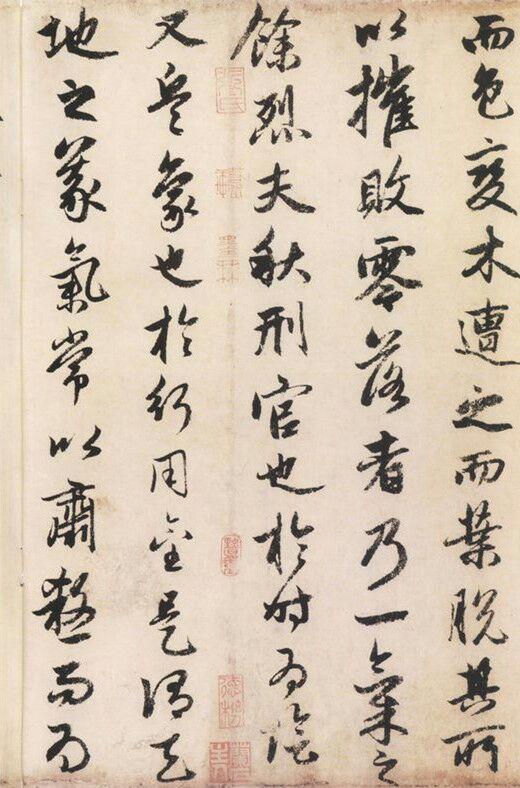 而色變木遭之而葉脫其所
以摧敗零落者乃一氣之
餘烈夫秋刑官也於时為陰
又兵象也於行用金是謂天
地之義氣常以肅殺而為